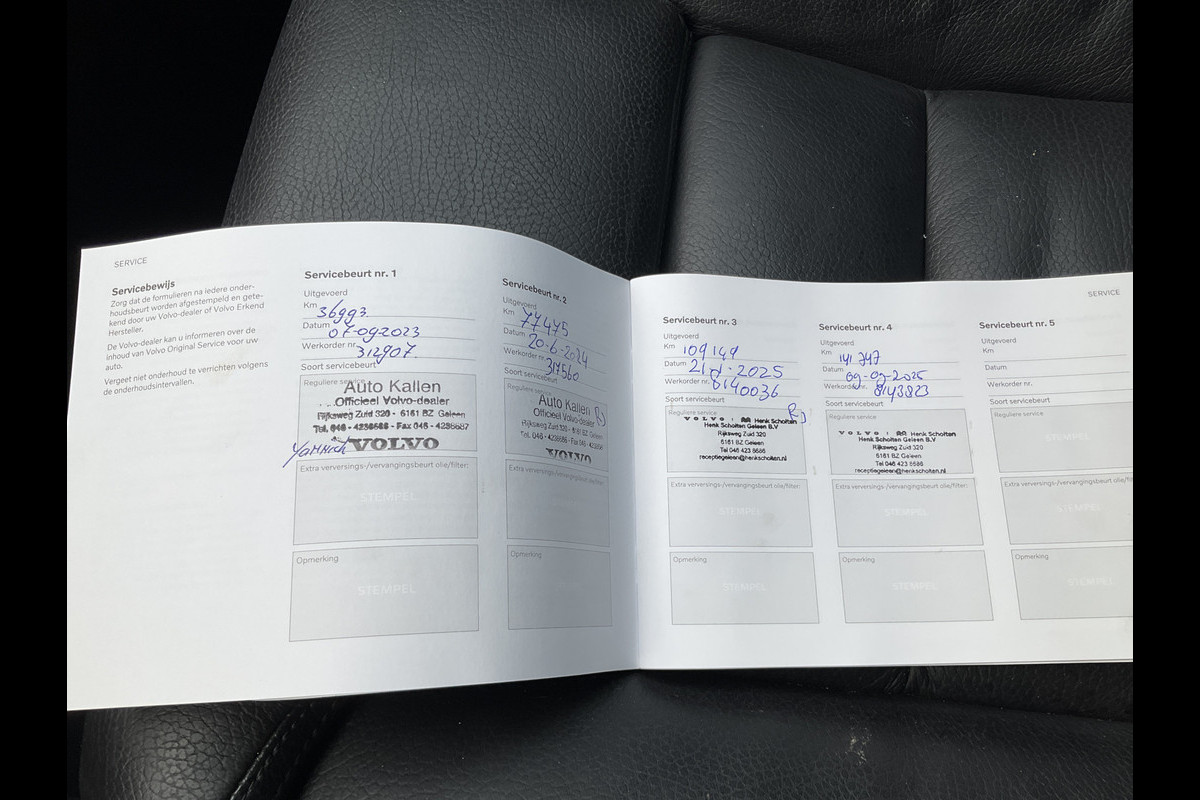 SERVICE
Servicebewijs
Zorg dat de formulieren na iedere onder-
houdsbeurt worden afgestempeld en gete-
kend door uw Volvo-dealer of Volvo Erkend
Hersteller.
De Volvo-dealer kan u informeren over de
inhoud van Volvo Original Service voor uw
auto.
Vergeet niet onderhoud te verrichten volgens
de onderhoudsintervallen.
Servicebeurt nr. 1
Uitgevoerd
Km 36993
Datum 07-09-2023
Werkorder nr. 312907
Soort servicebeurt
Reguliere service
Auto Kallen
Officieel Volvo-dealer
Rijksweg Zuid 320 - 6161 BZ Geleen
Tel. 046 - 4236686 - Fax 046 - 4236687
VOLVO
Extra verversings-/vervangingsbeurt olie/filter:
STEMPEL
Opmerking
STEMPEL
Servicebeurt nr. 2
Uitgevoerd
Km 77475
Datum 20-6-2024
Werkorder nr. 317560
Soort servicebeurt
Reguliere service
Auto Kallen
Officieel Volvo-dealer
Rijksweg Zuid 320 - 6161 BZ Geleen
Tel. 046 - 4236686 - Fax 046 -
VOLVO
Extra verversings-/vervangingsbeurt olie/filter:
Opmerking
SERVICE
Servicebeurt nr. 3
Uitgevoerd
Km 109149
Datum 2025
Werkorder nr. 8140036
Soort servicebeurt
Reguliere service
VOLVO Henk Scholten
Henk Scholten Geleen B.V
Rijksweg Zuid 320
6161 BZ Geleen
Tel 046 423 6686
receptiegeleen@henkscholten.nl
Extra verversings-/vervangingsbeurt olie/filter:
STEMPEL
Opmerking
STEMPEL
Servicebeurt nr. 4
Uitgevoerd
Km 141747
Datum 09-09-2025
Werkorder nr. 8143823
Soort servicebeurt
Reguliere service
VOLVO Henk Scholten
Henk Scholten Geleen B.V
Rijksweg Zuid 320
6161 BZ Geleen
Tel 046 423 6686
receptiegeleen@henkscholten.nl
Extra verversings-/vervangingsbeurt olie/filter:
STEMPEL
Opmerking
STEMPEL
Servicebeurt nr. 5
Uitgevoerd
Km
Datum
Werkorder nr.
Soort servicebeurt
Reguliere service
STEMPEL
Extra verversings-/vervangingsbeurt olie/
STEMPEL
Opmerking
STEMPEL